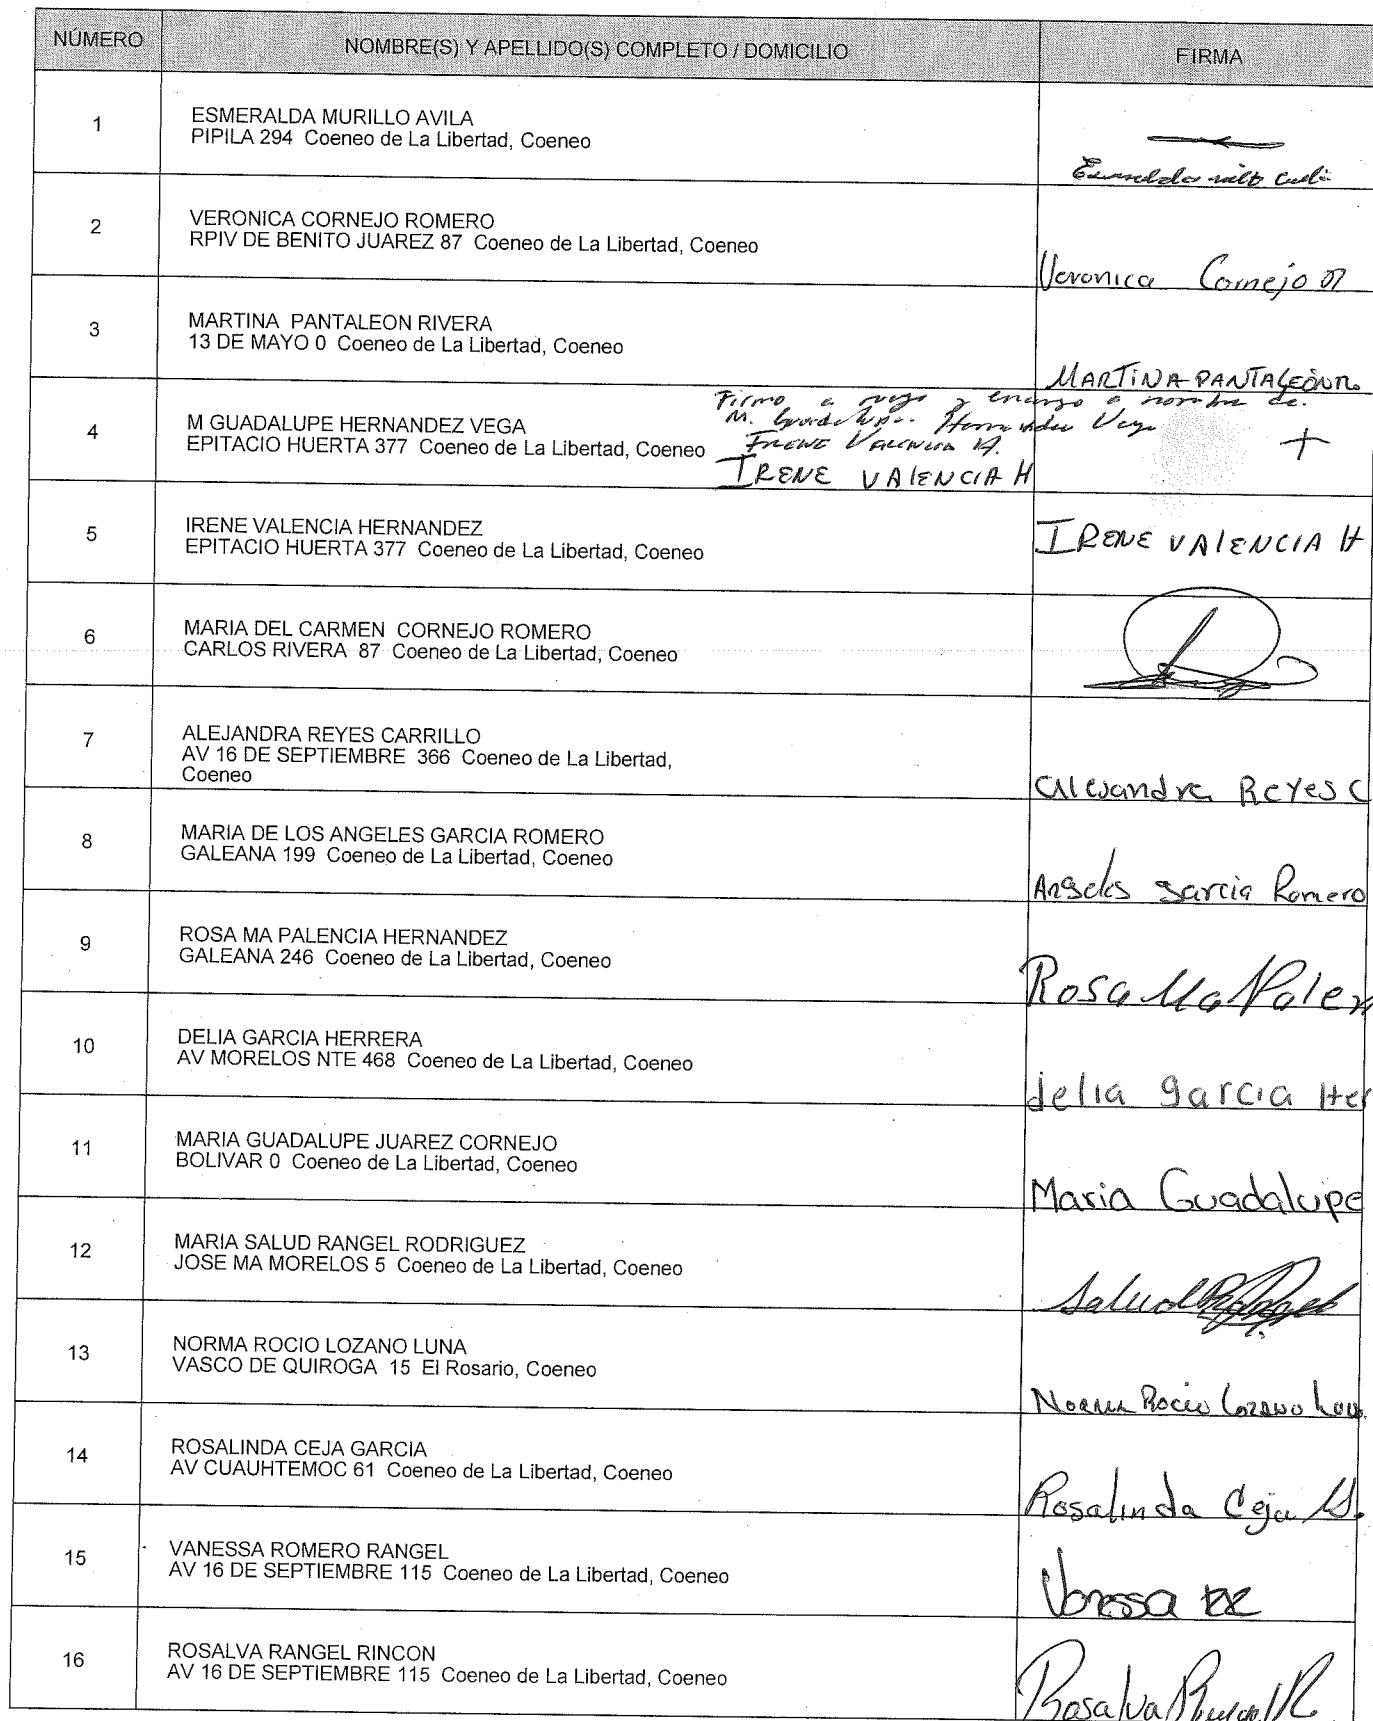 NÚMERO NOMBRE(S) Y APELLIDO(S) COMPLETO / DOMICILIO FIRMA
1 ESMERALDA MURILLO AVILA
PIPILA 294 Coeneo de La Libertad, Coeneo
2 VERONICA CORNEJO ROMERO
RPIV DE BENITO JUAREZ 87 Coeneo de La Libertad, Coeneo
Veronica Cornejo R
3 MARTINA PANTALEON RIVERA
13 DE MAYO 0 Coeneo de La Libertad, Coeneo
MARTINA PANTALEON R.
Firmo a ruego y encargo a nombre de.
4 M GUADALUPE HERNANDEZ VEGA
M. Guadalupe. Hernandez Vega
EPITACIO HUERTA 377 Coeneo de La Libertad, Coeneo
IRENE VALENCIA H.
+
IRENE VALENCIA H
5 IRENE VALENCIA HERNANDEZ
EPITACIO HUERTA 377 Coeneo de La Libertad, Coeneo
IRENE VALENCIA H
6 MARIA DEL CARMEN CORNEJO ROMERO
CARLOS RIVERA 87 Coeneo de La Libertad, Coeneo
7 ALEJANDRA REYES CARRILLO
AV 16 DE SEPTIEMBRE 366 Coeneo de La Libertad,
Coeneo
Alejandra Reyes C
8 MARIA DE LOS ANGELES GARCIA ROMERO
GALEANA 199 Coeneo de La Libertad, Coeneo
Angeles Garcia Romero
9 ROSA MA PALENCIA HERNANDEZ
GALEANA 246 Coeneo de La Libertad, Coeneo
Rosa Ma Palen
10 DELIA GARCIA HERRERA
AV MORELOS NTE 468 Coeneo de La Libertad, Coeneo
delia garcia Her
11 MARIA GUADALUPE JUAREZ CORNEJO
BOLIVAR 0 Coeneo de La Libertad, Coeneo
Maria Guadalupe
12 MARIA SALUD RANGEL RODRIGUEZ
JOSE MA MORELOS 5 Coeneo de La Libertad, Coeneo
Salud Rangel
13 NORMA ROCIO LOZANO LUNA
VASCO DE QUIROGA 15 El Rosario, Coeneo
Norma Rocio Lozano Luna
14 ROSALINDA CEJA GARCIA
AV CUAUHTEMOC 61 Coeneo de La Libertad, Coeneo
Rosalinda Ceja G.
15 VANESSA ROMERO RANGEL
AV 16 DE SEPTIEMBRE 115 Coeneo de La Libertad, Coeneo
Vanessa RR
16 ROSALVA RANGEL RINCON
AV 16 DE SEPTIEMBRE 115 Coeneo de La Libertad, Coeneo
Rosalva Rangel R